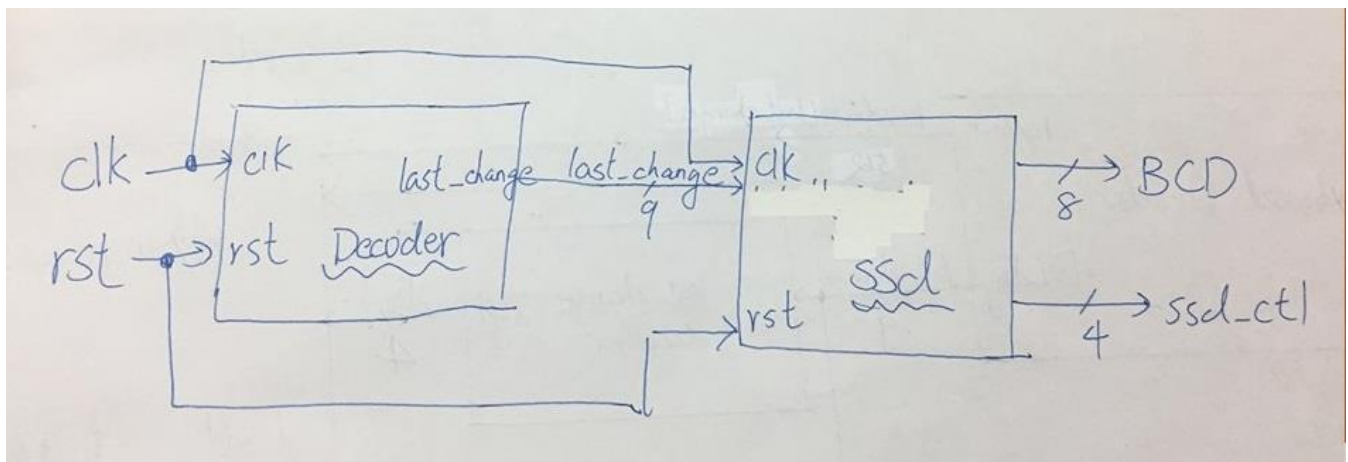 clk
rst
clk
rst
Decoder
last_change
last_change
9
clk
rst
ssd
8
BCD
4
ssd_ctl